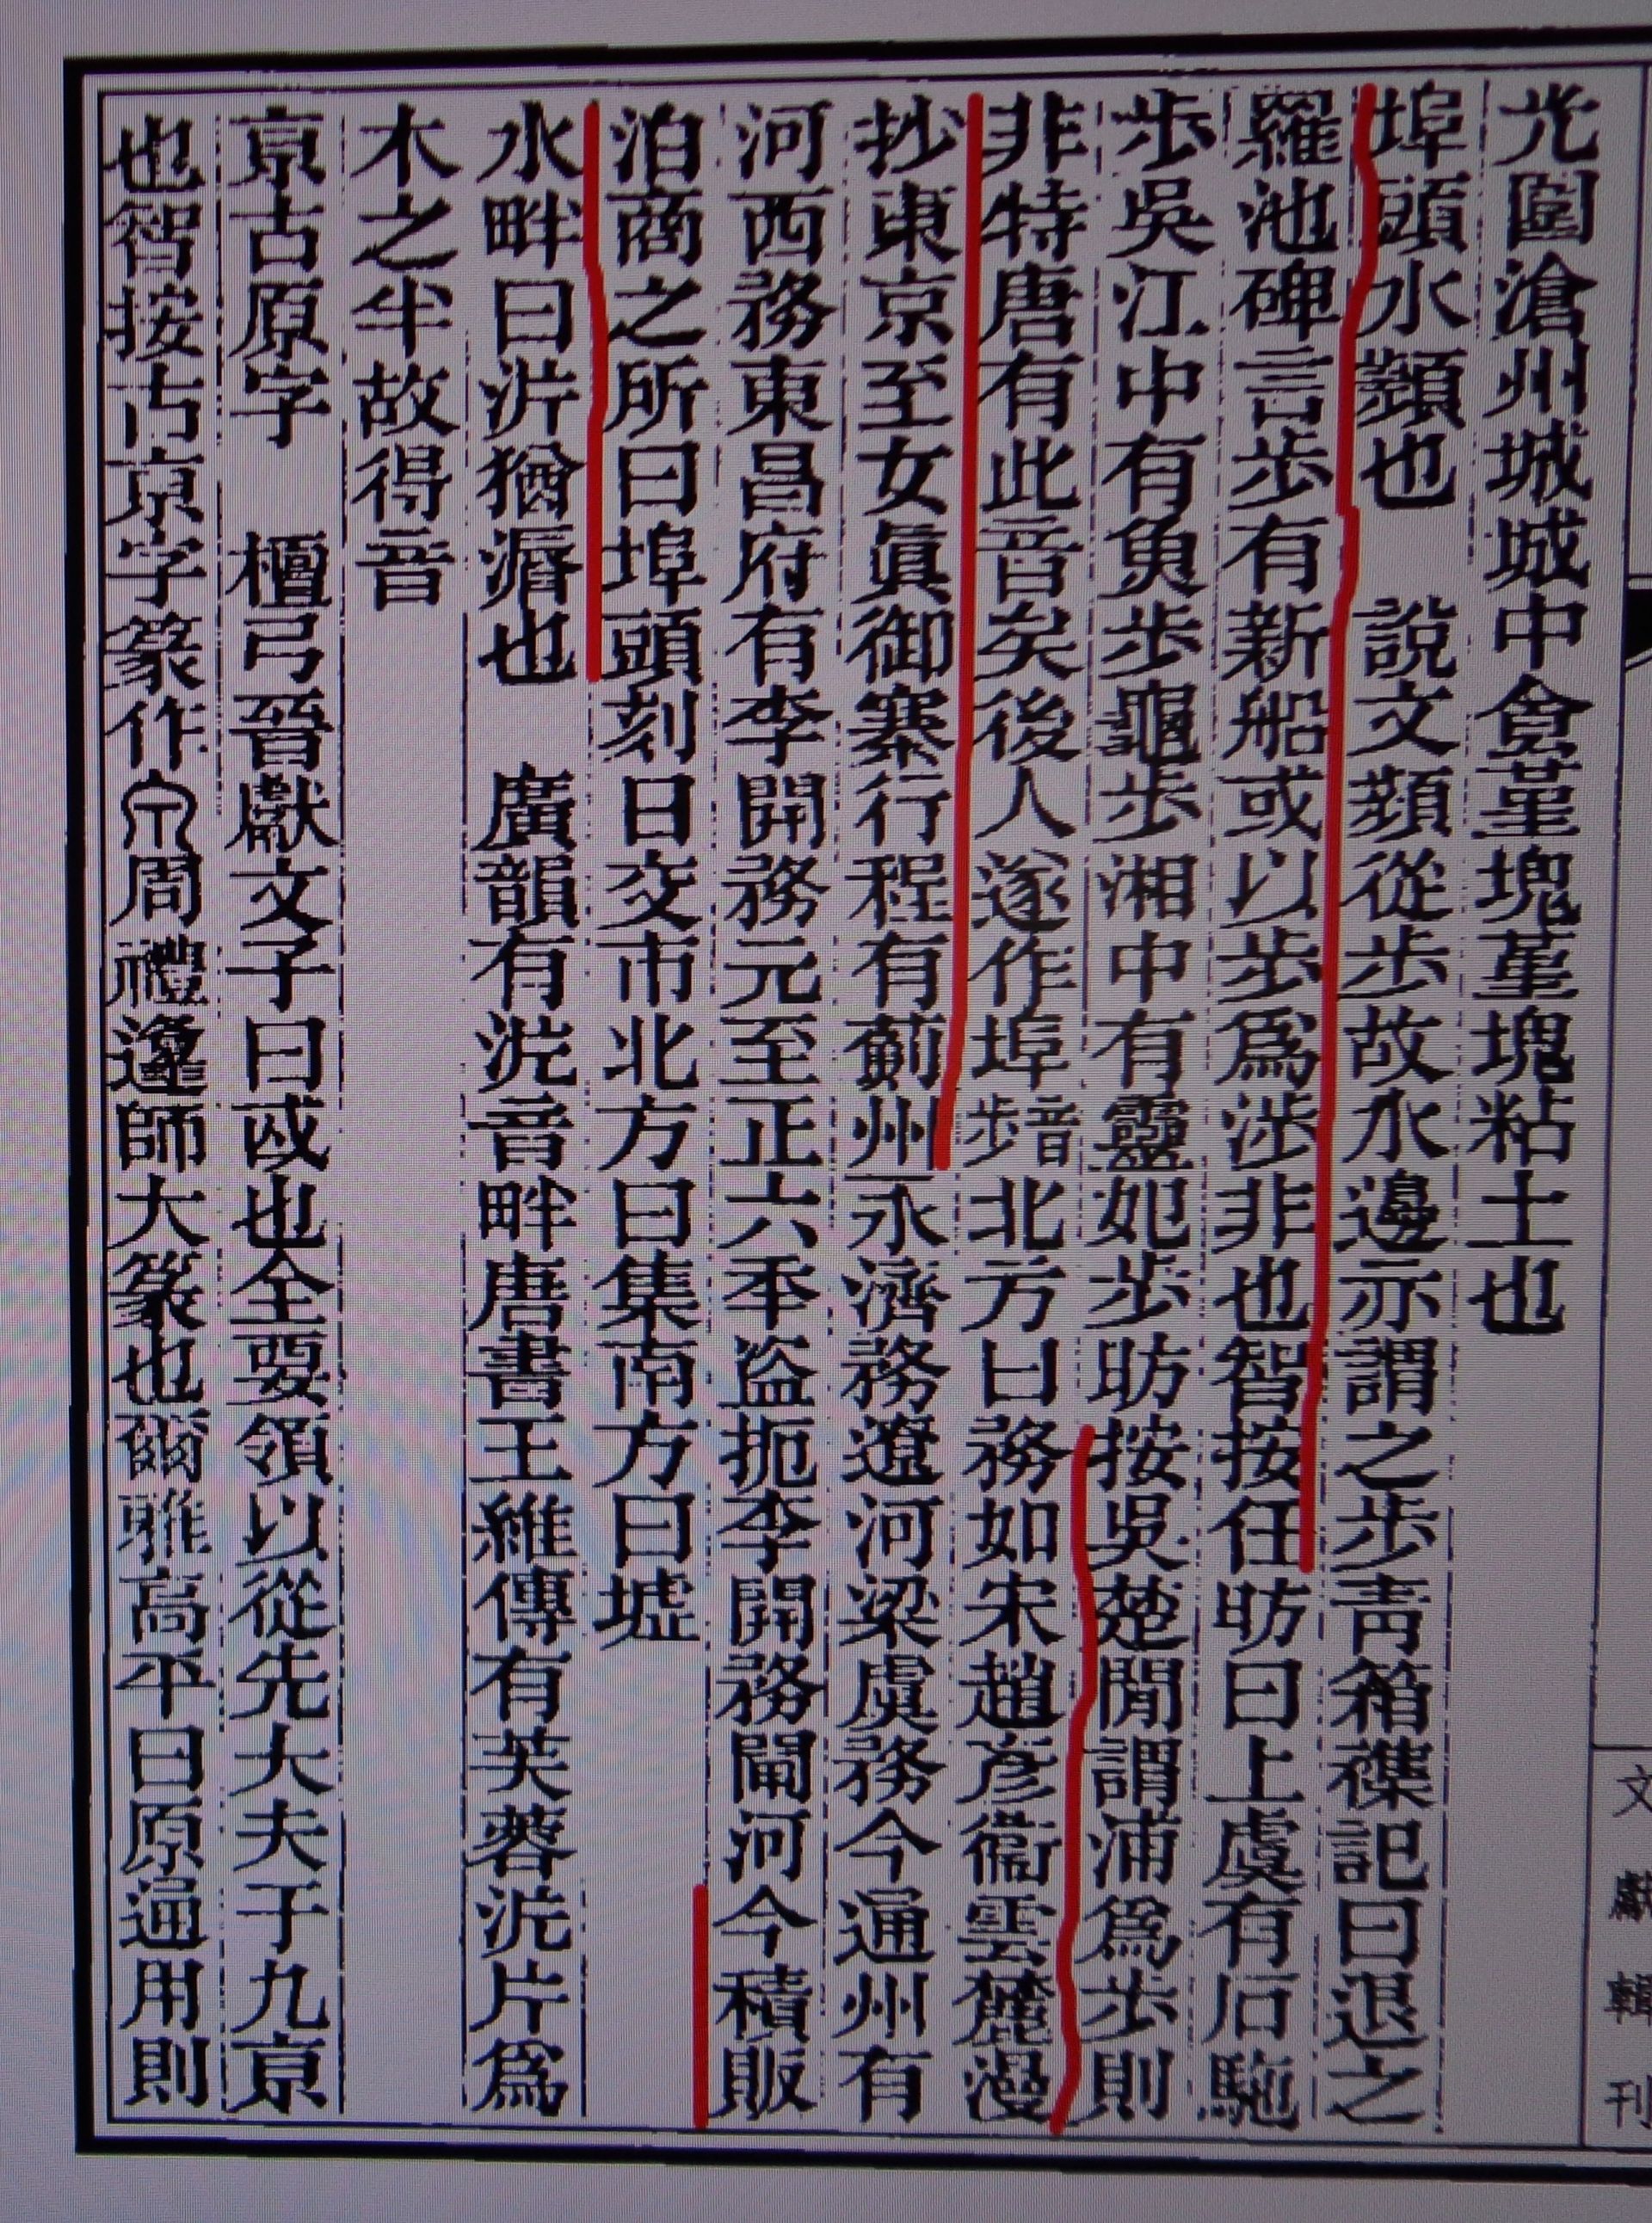 光圖滄州城城中倉堇塊堇塊粘土也
埠頭水瀕也　說文瀕從步故水邊亦謂之步靑箱襍記曰退之
羅池碑言步有新船或以步爲涉非也智按任昉曰上虞有石駞
步吳江中有魚步龜步湘中有靈妃步昉按吳楚閒謂浦爲步則
非特唐有此音矣後人遂作埠音步北方曰務如宋趙彥衞雲麓漫
抄東京至女眞御寨行程有薊州永濟務遼河梁虞務今通州有
河西務東昌府有李開務元至正六年盜扼李開務閘河今積販
泊商之所曰埠頭刻日交市北方曰集南方曰墟
水畔曰沜猶漘也　廣韻有沜音畔唐書王維傳有芙蓉沜片爲
木之半故得音
京古原字　檀弓晉獻文子曰武也全要領以從先大夫于九京
也智按古京字篆作周禮邍師大篆也爾雅高平曰原通用則
文獻輯刊